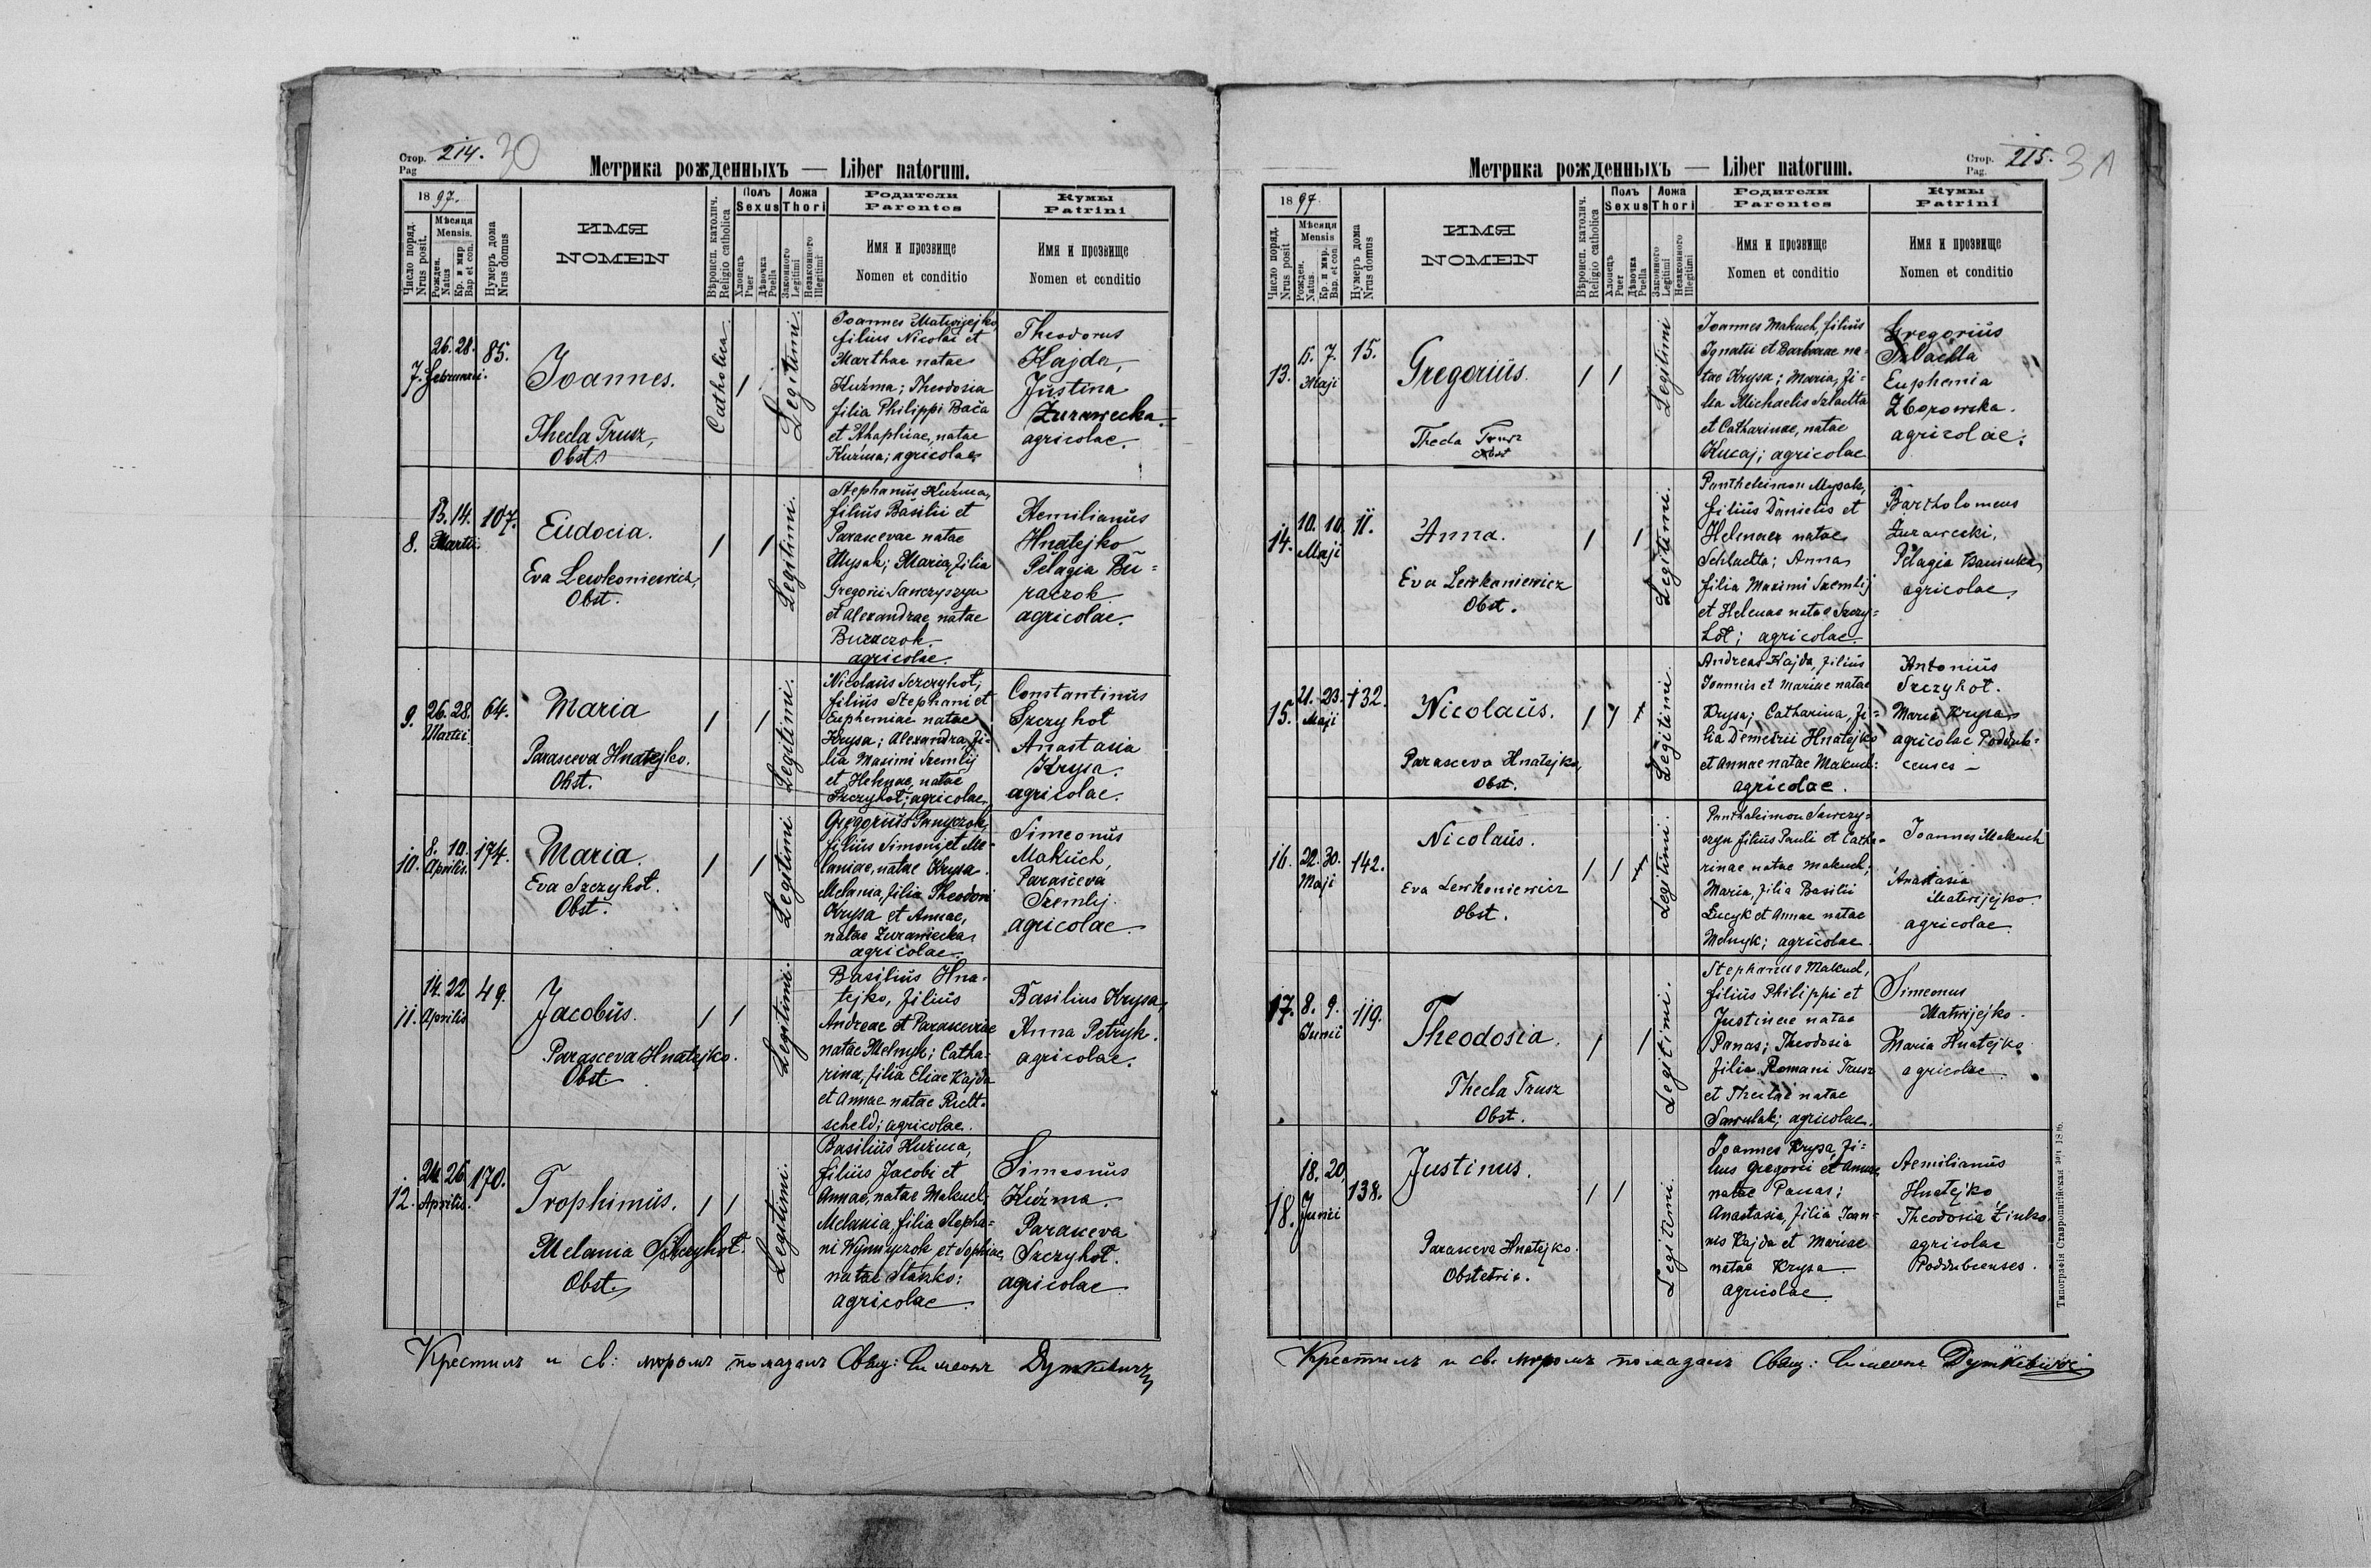 Стор. 214. 30
Pag
Метрика рожденныхъ — Liber natorum.
1897.
Число поряд.
Nrus posit.
Мѣсяця
Mensis.
Рожден.
Natus
Кр. и мир
Bap et con.
Нумеръ дома
Nrus domus
ИМЯ
NOMEN
Вѣроисп. католич.
Religio catholica
Полъ
Sexus
Хлопецъ
Puer
Дѣвочка
Puella
Ложа
Thori
Законного
Legitimi
Незаконного
Illegitimi
Родители
Parentes
Имя и прозвище
Nomen et conditio
Кумы
Patrini
Имя и прозвище
Nomen et conditio
7. 26. 28. Februarii. 85.
Joannes.
Thecla Trusz,
Obst.
Catholica.
/
Legitimi.
Joannes Matwijejko
filius Nicolai et
Marthae natae
Kuźma; Theodosia
filia Philippi Bača
et Ahaphiae, natae
Kuźma; agricolae
Theodorus
Hajda,
Justina
Żurawecka
agricolae.
8. 13. 14. Martii. 107.
Eudocia.
Eva Lewkoniewicz,
Obst.
/ /
Legitimi.
Stephanus Kuźma,
filius Basilii et
Parascevae natae
Mysak; Maria, filia
Gregorii Sawczyszyn
et Alexandrae natae
Buraczok
agricolae.
Aemilianus
Hnatejko
Pelagia Bu=
raczok
agricolae.
9. 26. 28. Martii 64.
Maria
Parasceva Hnatejko.
Obst.
/ /
Legitimi.
Nicolaus Szczyhot,
filius Stephani et
Euphemiae natae
Krysa; Alexandra, fi=
lia Maximi Szemlij
et Helenae, natae
Szczyhot; agricolae.
Constantinus
Szczyhot
Anastasia
Krysa.
agricolae.
10. 8. 10. Aprilis. 174.
Maria.
Eva Szczyhot.
Obst.
/ /
Legitimi.
Gregorius
filius Simonis et Me=
laniae, natae Krysa.
Melania, filia Theodori
Krysa et Annae,
natae Żurawiecka
agricolae.
Simeonus
Makuch,
Parasceva
Szemlij.
agricolae.
11. 14. 22 Aprilis 49.
Jacobus.
Parasceva Hnatejko.
Obst
/ /
Legitimi.
Basilius Hna-
tejko, filius
Andreae et Parascevae
natae Melnyk; Catha-
rina, filia Eliae Kajda
et Annae natae Richt-
scheld; agricolae.
Basilius Krysa,
Anna Petryk.
agricolae.
12. 24. 26 Aprilis. 170.
Trophimus.
Melania Szczyhot.
Obst.
/ /
Legitimi.
Basilius Kuźma,
filius Jacobi et
Annae, natae Makuch;
Melania, filia Stepha=
ni Wynnyczok et Sophiae,
natae Staszko:
agricolae.
Simeonus
Kuźma.
Parasceva
Szczyhot.
agricolae
Крестилъ и св: мѵромъ помазалъ Свящ: Симеонъ Дуткевичъ
Стор. 215. 31
Pag.
Метрика рожденныхъ — Liber natorum.
1897.
Число поряд.
Nrus posit
Мѣсяця
Mensis
Рожден.
Natus.
Кр. и мир.
Bap. et con
Нумеръ дома
Nrus domus
ИМЯ
NOMEN
Вѣроисп. католич.
Religio catholica
Полъ
Sexus
Хлопецъ
Puer
Дѣвочка
Puella
Ложа
Thori
Законного
Legitimi
Незаконного
Illegitimi
Родители
Parentes
Имя и прозвище
Nomen et conditio
Кумы
Patrini
Имя и прозвище
Nomen et conditio
13. 7. Maji 15.
Gregorius.
Thecla Trusz
Obst
/ /
Legitimi
Joannes Makuch, filius
Ignatii et Barbarae na-
tae Krysa; Maria, fi=
lia Michaelis Szlachta
et Catharinae, natae
Kucaj; agricolae
Gregorius
Szlachta
Euphemia
Zborowska.
agricolae.
14. 10. 10. Maji 11.
Anna.
Eva Lewkoniewicz
Obst.
/ /
Legitimi.
Pantheleimon Mysak,
filius Danielis et
Helenae natae
Schlachta; Anna
filia Maximi Szemlij
et Helenae natae Szczy=
hot; agricolae.
Bartholomeus
Żurawecki,
Pelagia
agricolae.
15. 21. 23. Maji 132.
Nicolaus.
Parasceva Hnatejko,
Obst.
/ /
Legitimi.
Andreas Hajda, filius
Joannis et Mariae natae
Krysa; Catharina, fi=
lia Demetrii Hnatejko
et Annae natae Makuch:
agricolae.
Antonius
Szczyhot.
Maria Krysa
agricolae Poddub-
censes —
16. 22. 30. Maji 142.
Nicolaus.
Eva Lewkoniewicz
Obst.
/ /
Legitimi.
Panthaleimon Sawczy=
szyn filius Pauli et Catha=
rinae natae Makuch;
Maria, filia Basilii
Łucyk et Annae natae
Melnyk; agricolae.
Joannes Makuch
Anastasia
Matwijejko.
agricolae
17. 8. 9. Junii 119.
Theodosia.
Thecla Trusz
Obst.
/ /
Legitimi.
Stephanus Makuch,
filius Philippi et
Justinae natae
Panas; Theodosia
filia Romani Trusz
et Theclae natae
Sawulak; agricolae.
Simeonus
Matwijejko.
Maria Hnatejko
agricolae.
18. 18. 20. Junii 138.
Justinus.
Parasceva Hnatejko.
Obstetrix.
/ /
Legitimi.
Joannes Krysa, fi=
lius Gregorii et Annae,
natae Panas;
Anastasia, filia Joan-
nis Kajda et Mariae
natae Krysa
agricolae.
Aemilianus
Hnatejko
Theodosia Zinko
agricolae
Poddubcenses.
Крестилъ и св. мѵромъ помазалъ Свящ: Симеонъ Дуткевичъ
Типографія Ставропигійская